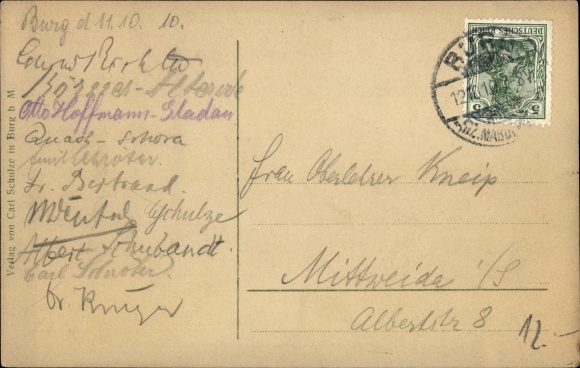 Burg d 11.10. 10.
Otto Hoffmann-Gladau
Quast-Schora
Emil Schröter.
Fr. Bertrand
Wentzel GSchulze
Albert Schubandt.
Carl Schröter.
Dr. Krüger
Verlag von Carl Schulze in Burg b M
DEUTSCHES REICH
5
5
BURG
12.10.10
(BZ. MAGDEB
Frau Oberlehrer Kneip
Mittweida i/S
Albertstr 8
12.-